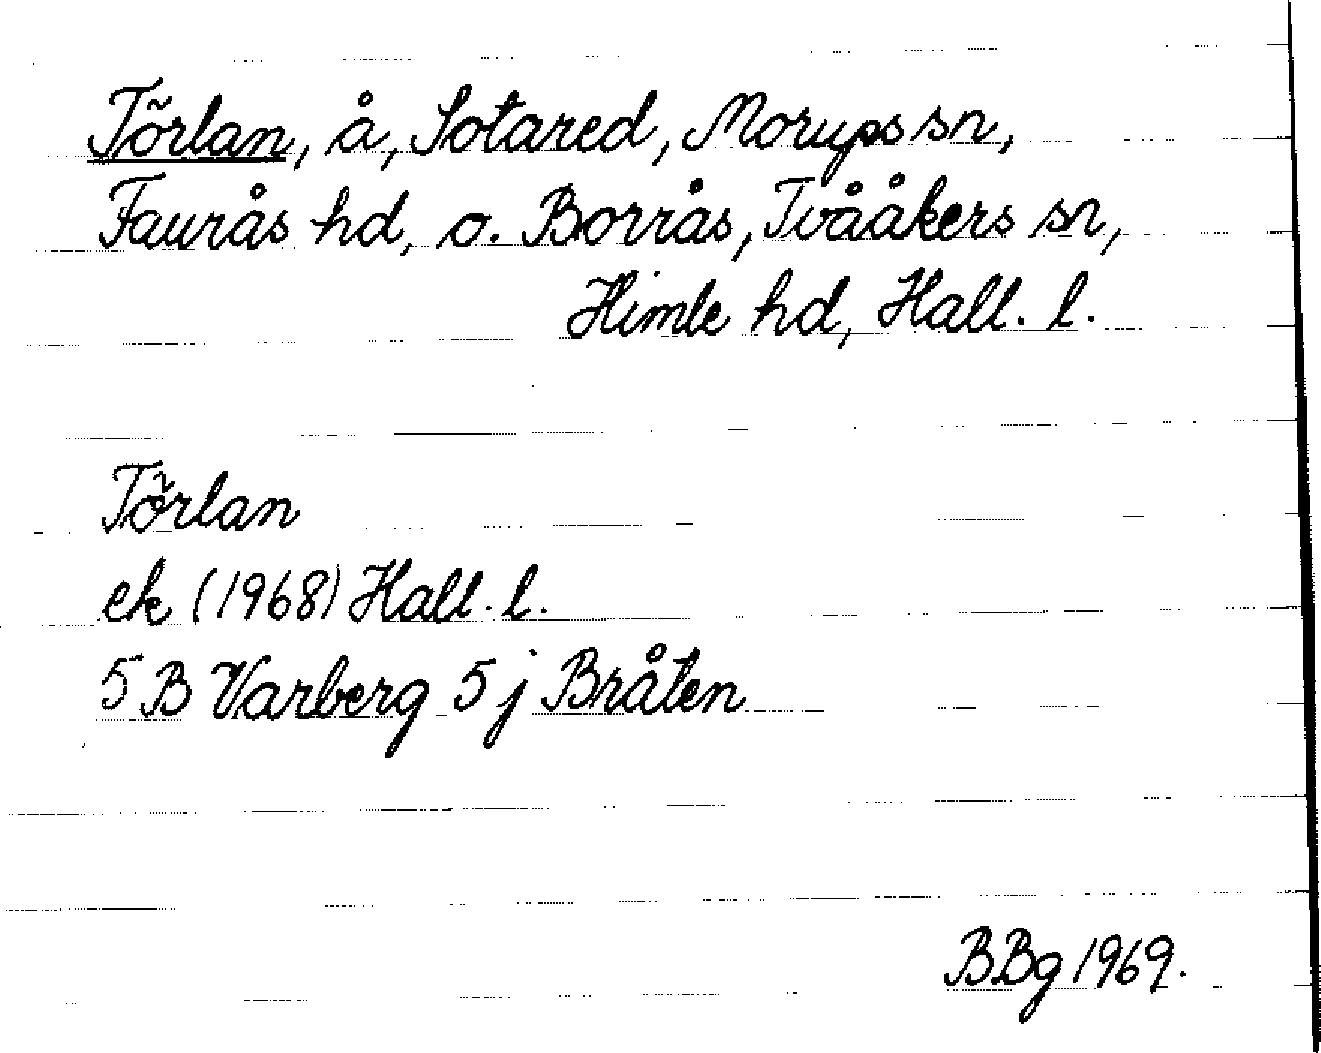 Törlan, å, Sotared, Morups sn,
Faurås hd, o. Borrås, Tvååkers sn,
Himle hd, Hall. l.
Törlan
ek (1968) Hall. l.
5 B Varberg 5 j Bråten
BBg 1969.